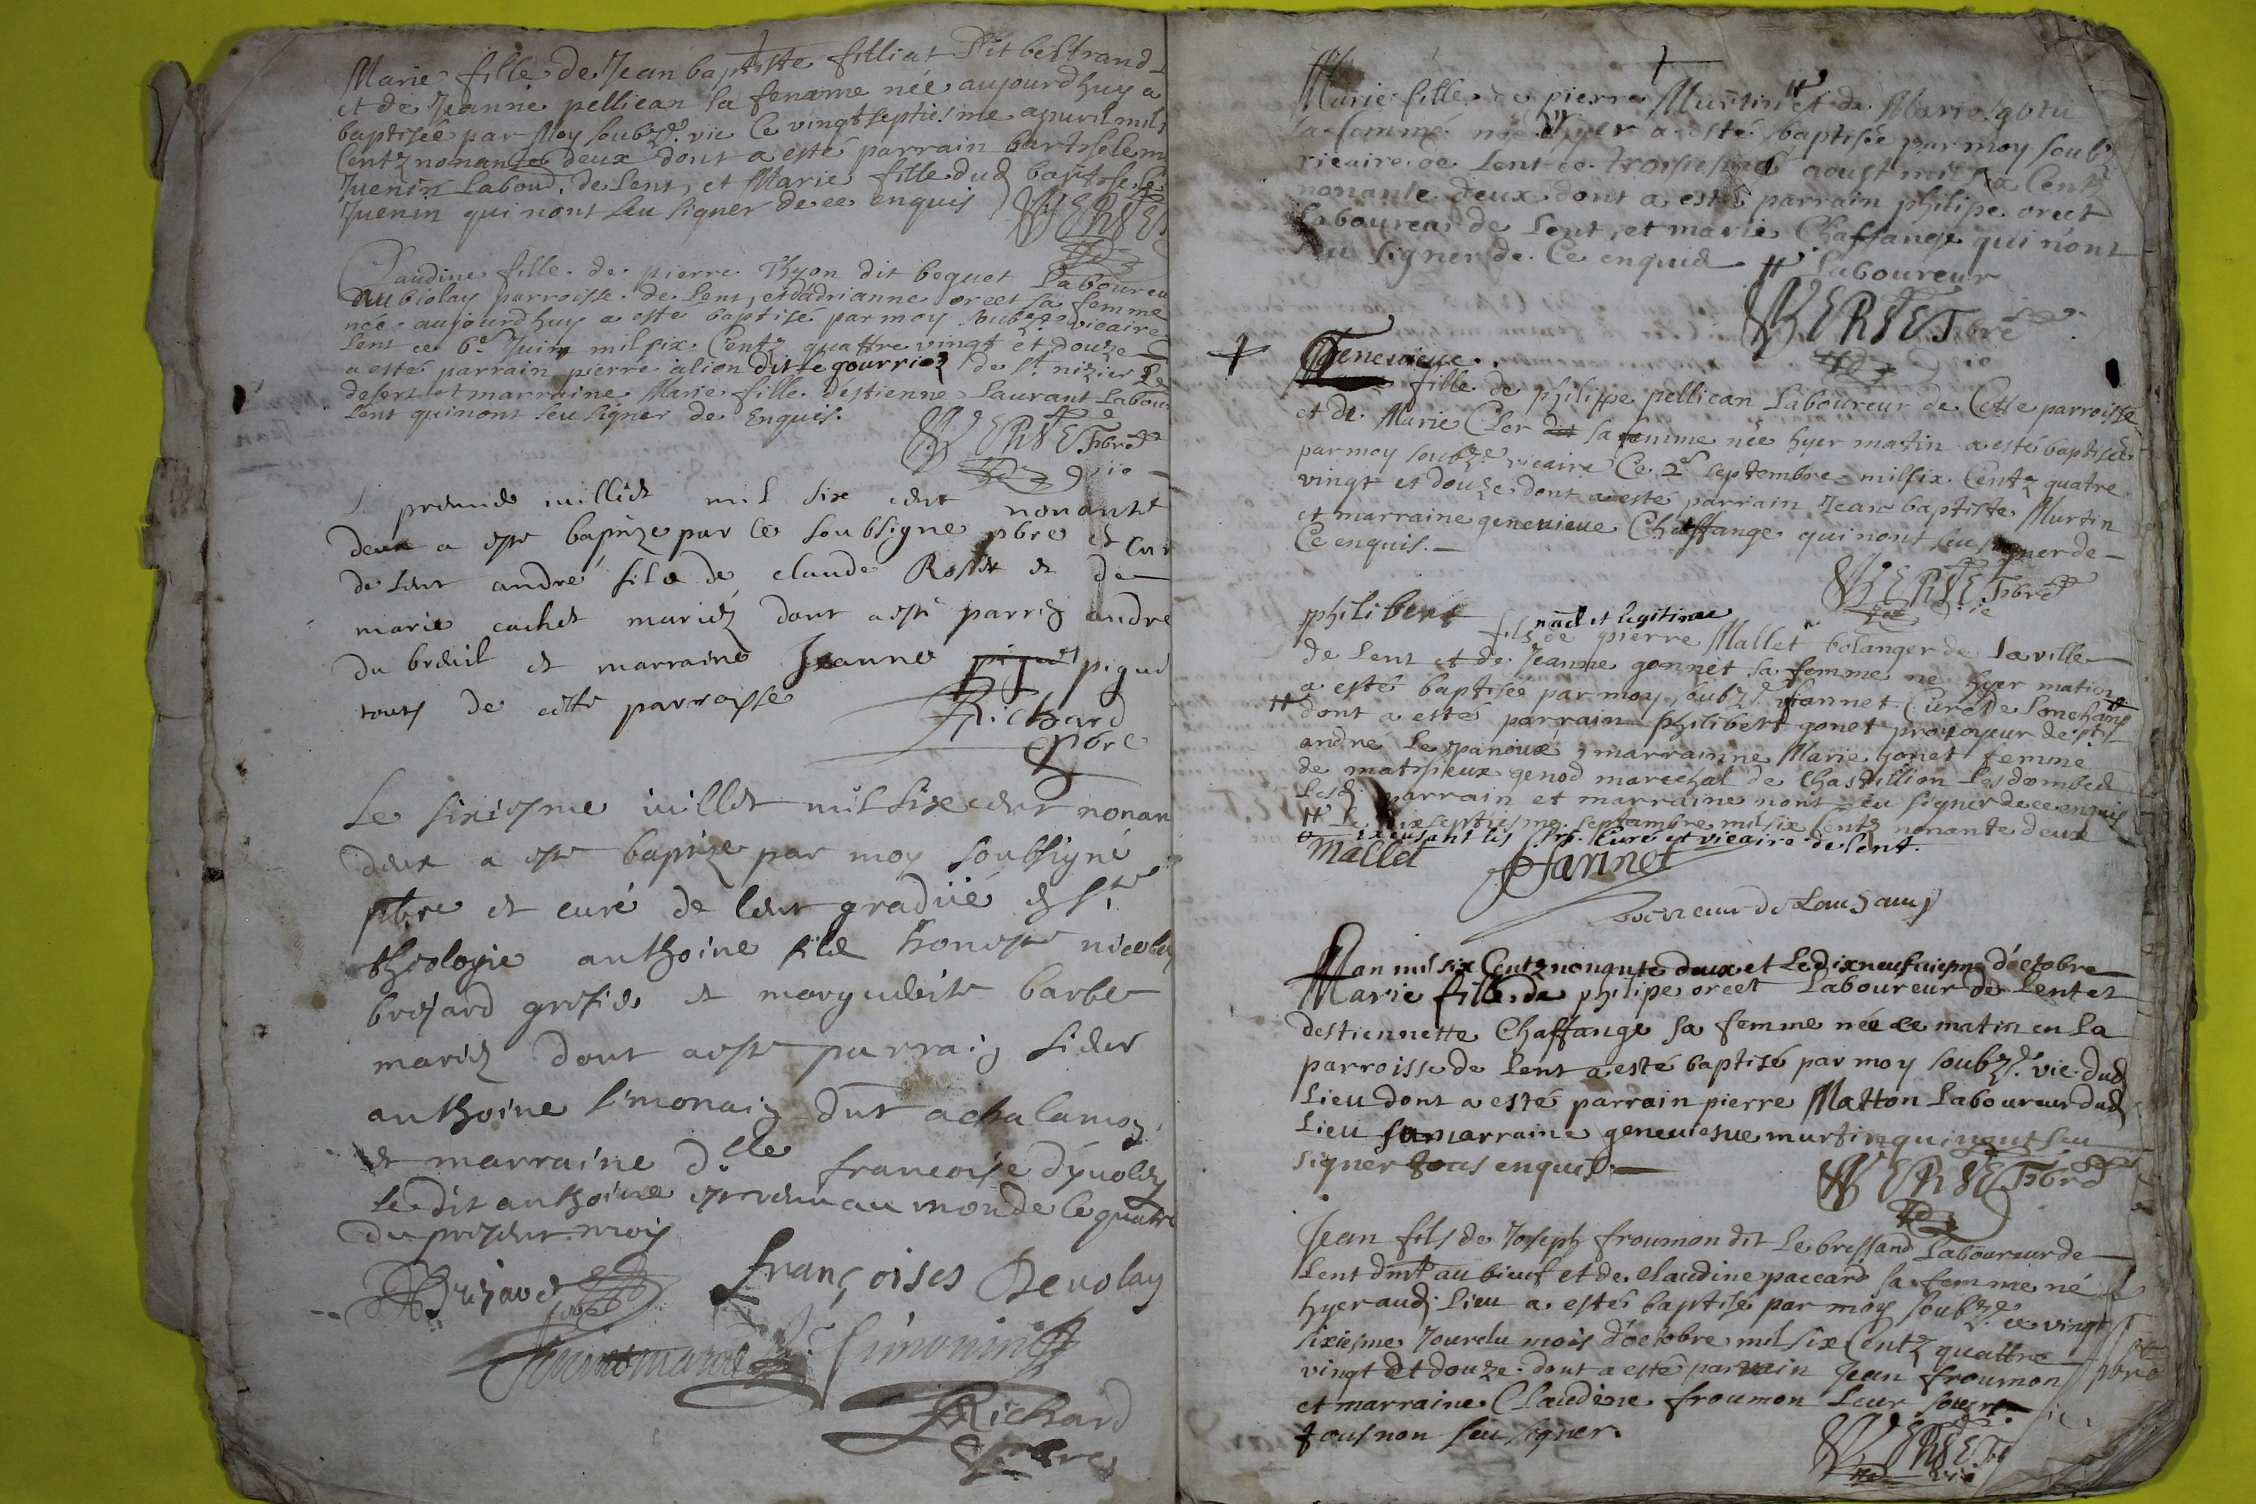 Marie fille de Jean baptiste filliat Dit bertrand
et de Jeanne pellican sa femme née aujourdhuy a
baptisée par Moy soubz.é vic ce vingtseptiesme apuril mil
Centz nonante deux dont a esté parrain bartholem
Juenin Laboud. de Lent, et Marie fille dud baptise
Juenin qui nont seu signer de ce enquis
Claudine fille de pierre Thyon dit bequet Laboureu
au biolay parroisse de Lent, et dadrianne orcet sa femme
née aujourdhuy a esté baptisé par moy soubz.é vicaire
Lent ce 6.e Juin mil six Centz quattre vingt et douze
a esté parrain pierre alion dit le gourrier de s.t nizier Le
desert et marraine Marie fille destienne Laurant Labou
Lent qui nont seu signer de Enquis.
premie juillet mil six cent nonante
deux a este baptize par le soubsigne pbre et cur
de Lent andré fils de claude Rosset et de
marie cachet mariez dont a esté parrin andre
du breuil et marraine Jeanne pigut
tous de cette parroisse
Richard
pbre
Le sixiesme juillet mil six cent nonan
deux a este baptize par moy soubsigné
pbre et curé de Lent gradué en s.te
theologie anthoine fils honeste nicolas
brejard grefie et marguerite barbe
mariez dont a este parrain sieur
anthoine simonain de chalamon
et marraine d.lle francoise deuolay
le dit anthoine est venu au monde le quatre
du present mois
Brejard françoises Deuolay
Simonin
Richard
pbre
Marie fille de pierre Murtin et de Marie gotu
sa femme née hyer a esté baptisée par moy soubz
vicaire de Lent ce troisiesme aoust mil six Centz
nonante deux dont a esté parrain philipe orcet
Laboureur de Lent, et marie Chaffange qui n'ont
seu signer de Ce enquis # Laboureur
Geneuieue
fille de philippe pellican Laboureur de Cette parroisse
et de Marie Cler sa femme née hyer matin a esté baptisée
par moy soubz.é vicaire Ce 2.e septembre mil six Centz quatre
vingt et douze dont a esté parrain Jean baptiste Murtin
et marraine geneuieue Chaffange qui nont seu signer de
Ce enquis.
philibert nâel et legitime
fils de pierre Mallet bolanger de la ville
de Lent et de Jeanne gonnet sa femme né hyer matin
a esté baptisée par moy soubz.é Jannet Curé de Lonchamp
dont a esté parrain philibert gonet proyoyeur de st
andré Le panoux, marrainne Marie gonet femme
de mathieux genod marechal de Chastillion Les dombes
Lesd parrain et marraine nont seu signer de ce enquis
# Le dixseptiesme septembre mil six Centz nonante deux
# excusant les srs. Curé et vicaire de Lent.
Mallet Jannet
curé de Lonchamp
L'an mil six Centz nonante deux et Le dixneufuiesme d'octobre
Marie fille de philipe orcet Laboureur de Lent et
destiennette Chaffange sa femme née ce matin en la
parroisse de Lent a esté baptisé par moy soubz.é vic. dud
Lieu dont a esté parrain pierre Matton Laboureur dud
Lieu sa marraine geneuiesue murtin qui nont seu
signer tous enquis.
Jean fils de Joseph froumon dit Le bressand Laboureur de
Lent dmt au bieuf et de Claudine paccard sa femme né
hyer aud. Lieu a esté baptisé par moy soubz.é ce vingt
sixiesme Jour du mois d'octobre mil six Centz quattre
vingt et douze dont a esté parrain Jean froumon
et marraine Claudine froumon Leur soeur
tous non seu signer.